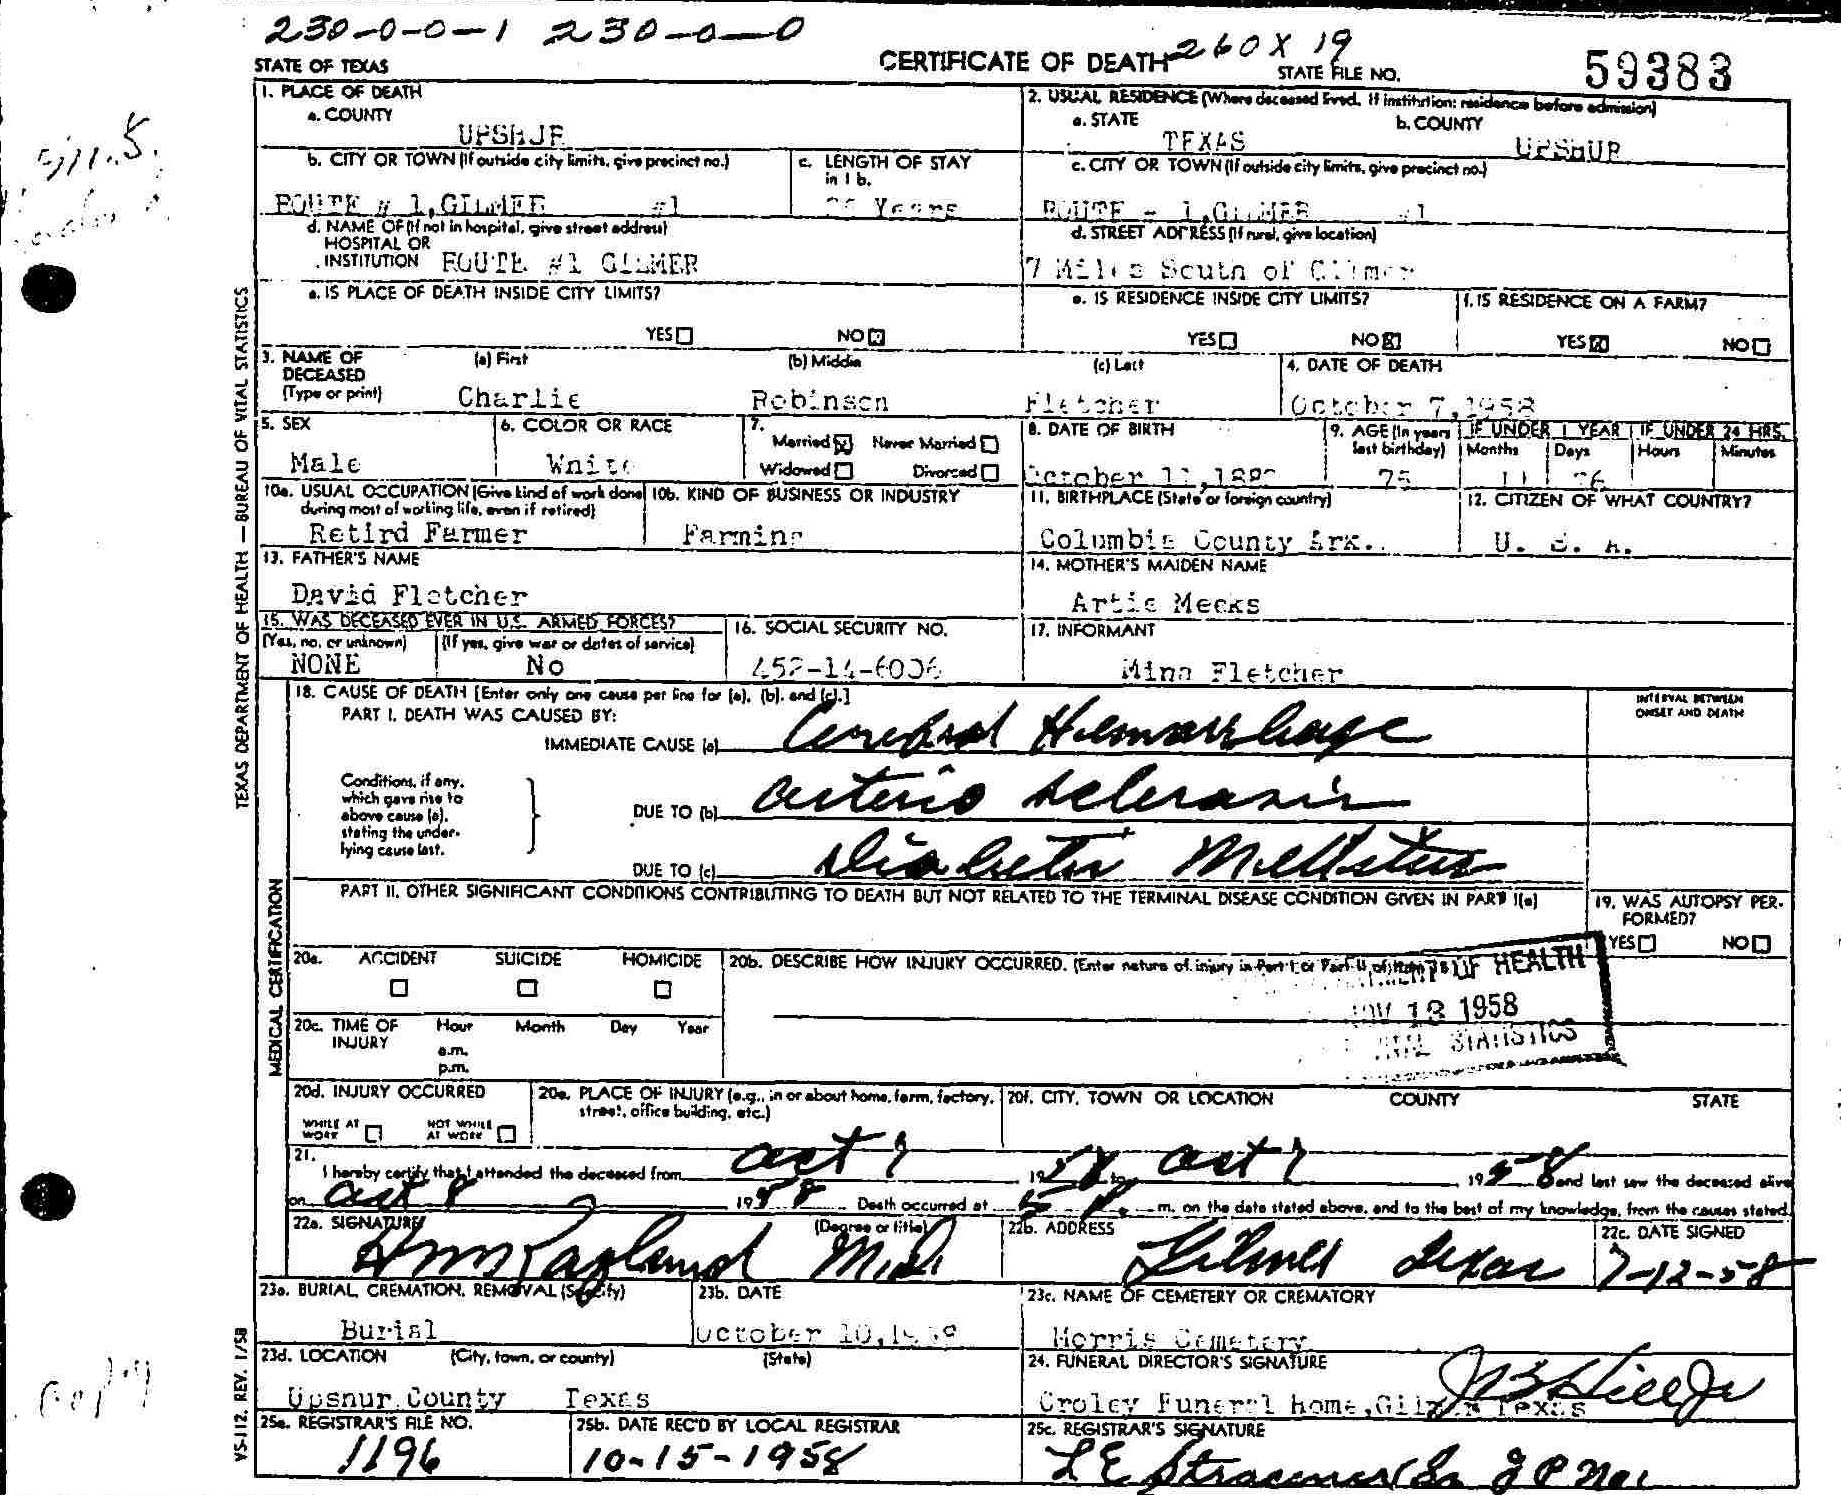 230-0-0-1 230-0-0
STATE OF TEXAS CERTIFICATE OF DEATH 260X 19 STATE FILE NO. 59383
1. PLACE OF DEATH
a. COUNTY
UPSHUR
2. USUAL RESIDENCE (Where deceased lived. If institution: residence before admission)
a. STATE b. COUNTY
TEXAS UPSHUR
b. CITY OR TOWN (If outside city limits, give precinct no.) c. LENGTH OF STAY in 1 b.
ROUTE # 1, GILMER #1 Years
c. CITY OR TOWN (If outside city limits, give precinct no.)
ROUTE # 1, GILMER #1
d. NAME OF (If not in hospital, give street address)
HOSPITAL OR
INSTITUTION ROUTE #1 GILMER
d. STREET ADDRESS (If rural, give location)
7 Miles South of Gilmer
e. IS PLACE OF DEATH INSIDE CITY LIMITS?
YES NO
e. IS RESIDENCE INSIDE CITY LIMITS? f. IS RESIDENCE ON A FARM?
YES NO YES NO
3. NAME OF DECEASED (Type or print) (a) First (b) Middle (c) Last 4. DATE OF DEATH
Charlie Robinson Fletcher October 7, 1958
5. SEX 6. COLOR OR RACE 7. Married Never Married Widowed Divorced
Male White
8. DATE OF BIRTH 9. AGE (In years last birthday) IF UNDER 1 YEAR IF UNDER 24 HRS.
Months Days Hours Minutes
October 11, 75 11 26
10a. USUAL OCCUPATION (Give kind of work done during most of working life, even if retired) 10b. KIND OF BUSINESS OR INDUSTRY
Retird Farmer Farming
11. BIRTHPLACE (State or foreign country) 12. CITIZEN OF WHAT COUNTRY?
Columbia County Ark. U. S. A.
13. FATHER'S NAME
David Fletcher
14. MOTHER'S MAIDEN NAME
Artie Meeks
15. WAS DECEASED EVER IN U.S. ARMED FORCES? 16. SOCIAL SECURITY NO. 17. INFORMANT
(Yes, no, or unknown) (If yes, give war or dates of service)
NONE No 452-14-6006 Mina Fletcher
18. CAUSE OF DEATH [Enter only one cause per line for (a), (b), and (c).]
INTERVAL BETWEEN ONSET AND DEATH
PART I. DEATH WAS CAUSED BY:
IMMEDIATE CAUSE (a) Cerebral Hemorrhage
Conditions, if any, which gave rise to above cause (a), stating the underlying cause last.
DUE TO (b) arterio sclerosis
DUE TO (c) Diabetis Mellitus
PART II. OTHER SIGNIFICANT CONDITIONS CONTRIBUTING TO DEATH BUT NOT RELATED TO THE TERMINAL DISEASE CONDITION GIVEN IN PART I(a)
19. WAS AUTOPSY PERFORMED?
YES NO
20a. ACCIDENT SUICIDE HOMICIDE
20b. DESCRIBE HOW INJURY OCCURRED. (Enter nature of injury in Part I or Part II of item 18)
OF HEALTH
NOV 13 1958
STATISTICS
20c. TIME OF INJURY Hour Month Day Year
a.m.
p.m.
20d. INJURY OCCURRED
WHILE AT WORK NOT WHILE AT WORK
20e. PLACE OF INJURY (e.g., in or about home, farm, factory, street, office building, etc.)
20f. CITY, TOWN OR LOCATION COUNTY STATE
21.
I hereby certify that I attended the deceased from Oct 7 1958 to Oct 7 1958 and last saw the deceased alive
on Oct 8 1958 Death occurred at 5 P. m. on the date stated above, and to the best of my knowledge, from the causes stated.
22a. SIGNATURE (Degree or title) 22b. ADDRESS 22c. DATE SIGNED
Ragland M.D. Gilmer Texas 7-12-58
23a. BURIAL, CREMATION, REMOVAL (Specify) 23b. DATE 23c. NAME OF CEMETERY OR CREMATORY
Burial October 10, Morris Cemetery
23d. LOCATION (City, town, or county) (State)
Upshur County Texas
24. FUNERAL DIRECTOR'S SIGNATURE
Croley Funeral Home, Gilmer Texas J B Hill Jr
25a. REGISTRAR'S FILE NO. 25b. DATE REC'D BY LOCAL REGISTRAR 25c. REGISTRAR'S SIGNATURE
1196 10-15-1958
TEXAS DEPARTMENT OF HEALTH — BUREAU OF VITAL STATISTICS
MEDICAL CERTIFICATION
VS-112, REV. 1/58